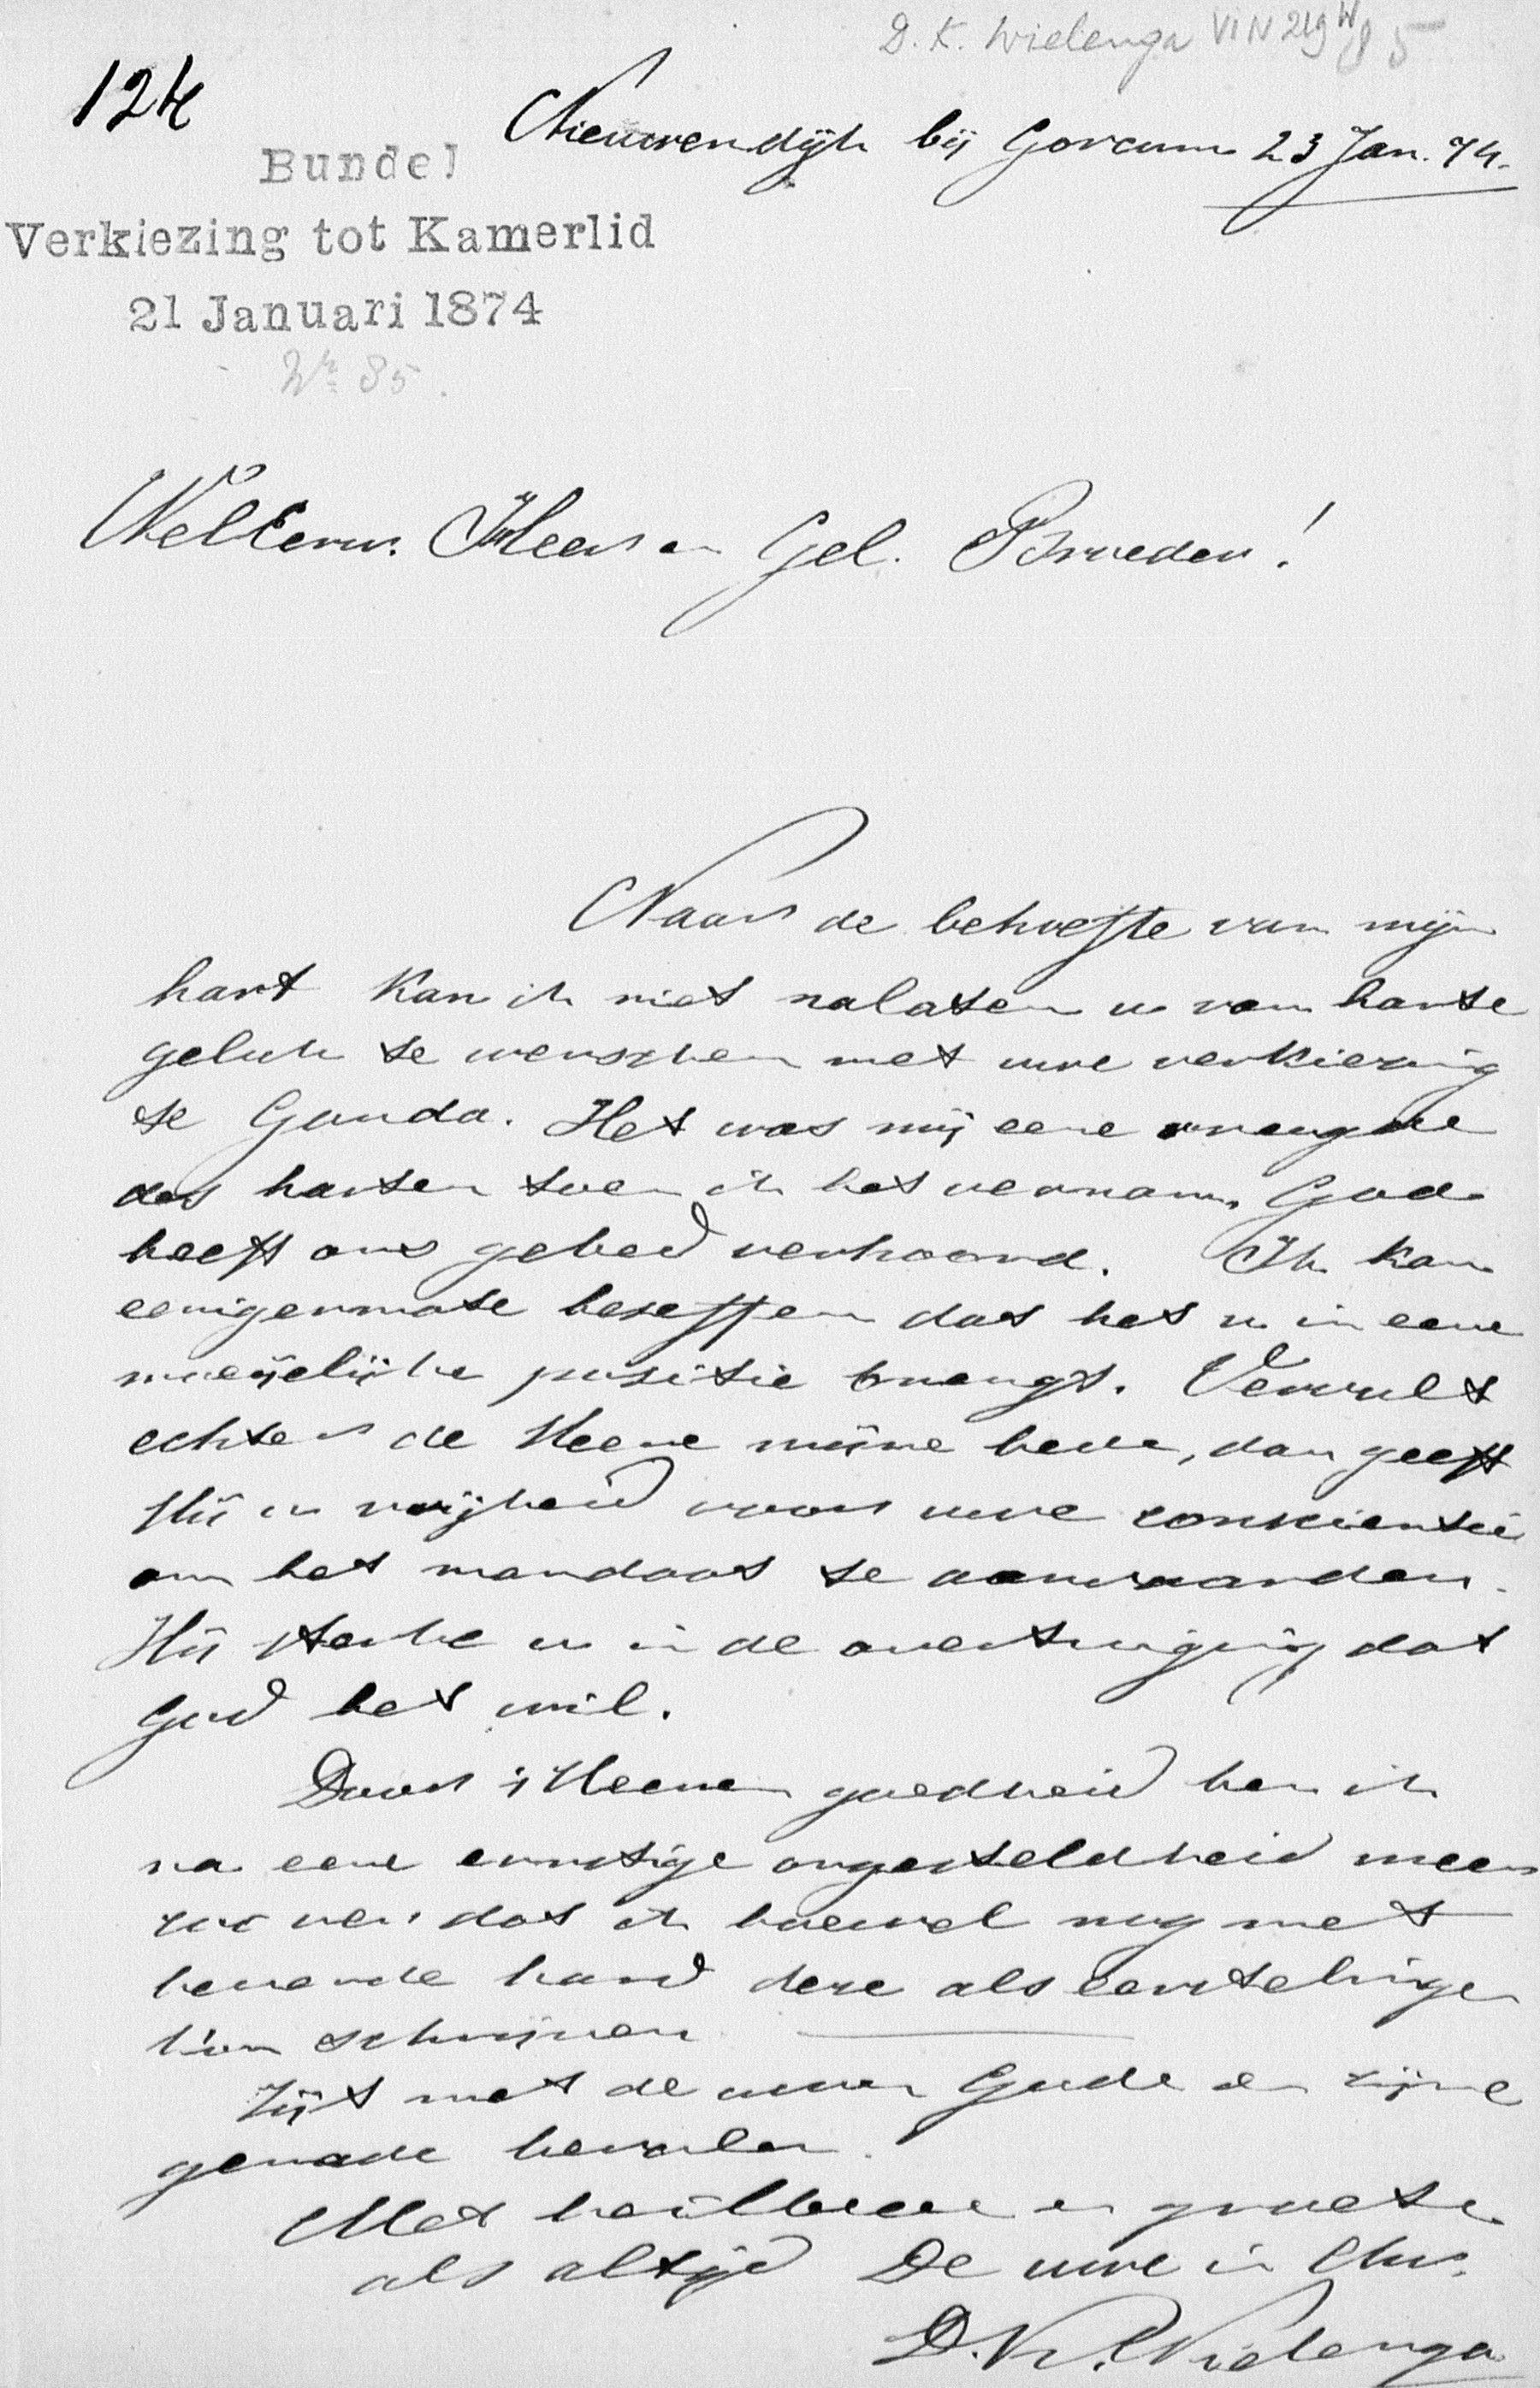 D. K. Wielenga VIN 219 W 85
124
Nieuwendijk bij Gorcum 23 Jan. 74.
Bundel
Verkiezing tot Kamerlid
21 Januari 1874
No 85.
WelEerw. Heer en Gel. Broeder!
Naar de behoefte van mijn
hart kan ik niet nalaten u van harte
geluk te wenschen met uwe verkiezing
te Gouda. Het was mij eene vreugde
des harten toen ik het vernam. God
heeft ons gebed verhoord. Ik kan
eenigermate beseffen dat het u in eene
moeijelijke positie brengt. Vervult
echter de Heere mijne bede, dan geeft
Hij u vrijheid voor uwe conscientie
om het mandaat te aanvaarden.
Hij sterke u in de overtuiging dat
God het wil.
Door 's Heeren goedheid ben ik
na eene ernstige ongesteldheid weer
zoo ver dat ik hoewel nog met
bevende hand deze als eersteling
kon schrijven
Zijt met de uwen Gode en zijne
genade bevolen.
Met heilbede en groete
als altijd De uwe in Chr.
D. K. Wielenga